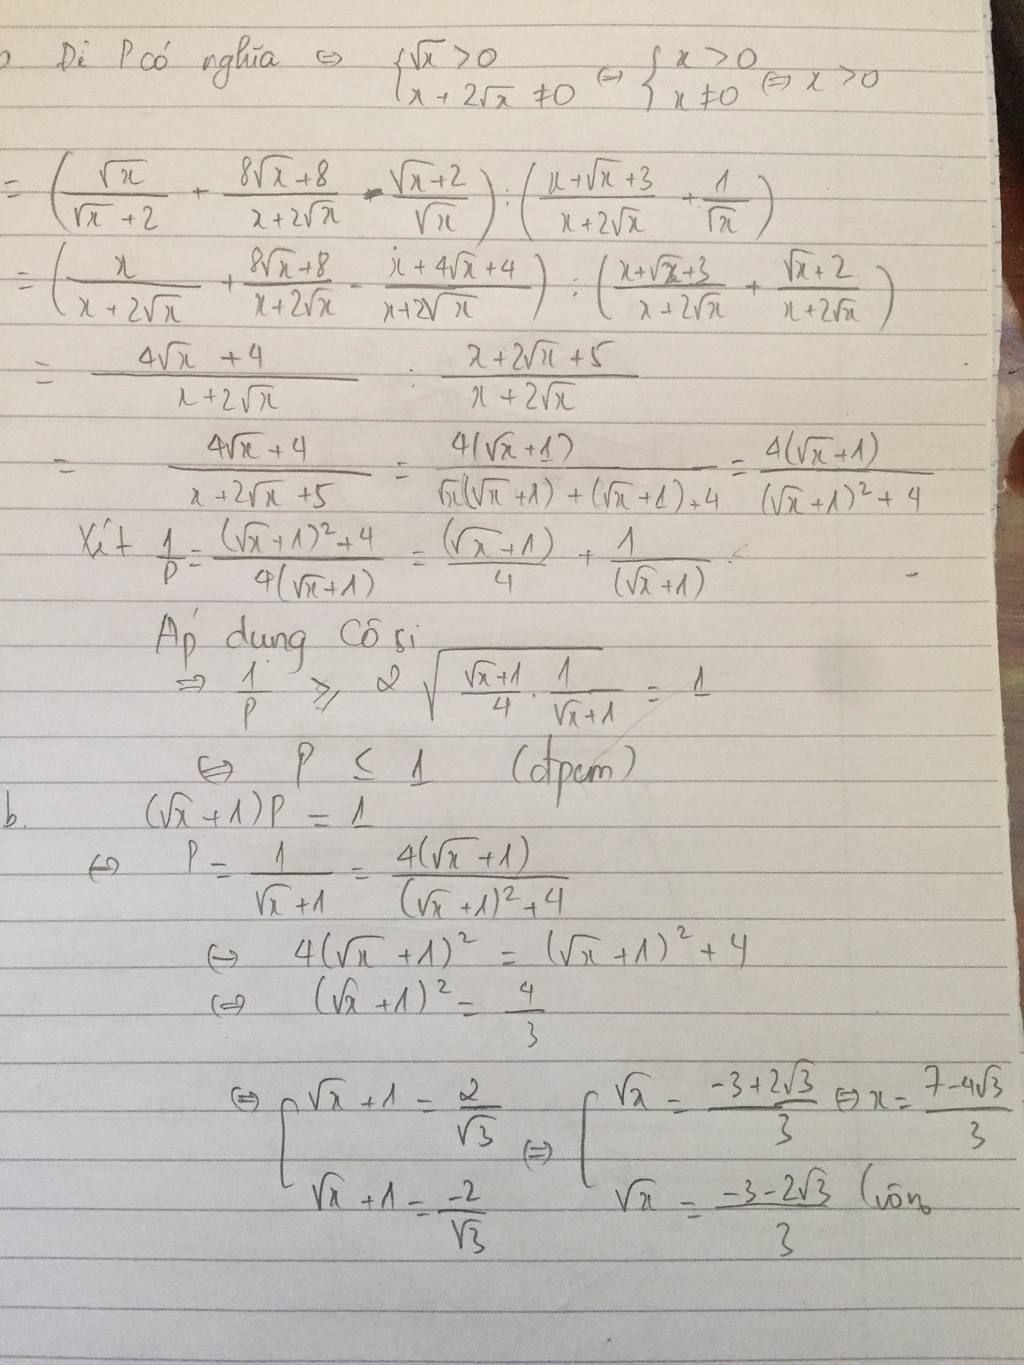 Để P có nghĩa ⇔ { √x > 0 ; x + 2√x ≠ 0 ⇔ { x > 0 ; x ≠ 0 ⇔ x > 0
= ( √x/(√x + 2) + (8√x + 8)/(x + 2√x) - (√x + 2)/√x ) : ( (x + √x + 3)/(x + 2√x) + 1/√x )
= ( x/(x + 2√x) + (8√x + 8)/(x + 2√x) - (x + 4√x + 4)/(x + 2√x) ) : ( (x + √x + 3)/(x + 2√x) + (√x + 2)/(x + 2√x) )
= (4√x + 4)/(x + 2√x) : (x + 2√x + 5)/(x + 2√x)
= (4√x + 4)/(x + 2√x + 5) = 4(√x + 1)/(√x(√x + 1) + (√x + 1) + 4) = 4(√x + 1)/((√x + 1)² + 4)
Xét 1/P = ((√x + 1)² + 4)/(4(√x + 1)) = (√x + 1)/4 + 1/(√x + 1)
Áp dụng Cô si
⇒ 1/P ≥ 2√( (√x + 1)/4 . 1/(√x + 1) ) = 1
⇔ P ≤ 1 (đpcm)
b. (√x + 1)P = 1
⇔ P = 1/(√x + 1) = 4(√x + 1)/((√x + 1)² + 4)
⇔ 4(√x + 1)² = (√x + 1)² + 4
⇔ (√x + 1)² = 4/3
⇔ [ √x + 1 = 2/√3 ⇔ [ √x = (-3 + 2√3)/3 ⇔ x = (7 - 4√3)/3
√x + 1 = -2/√3 √x = (-3 - 2√3)/3